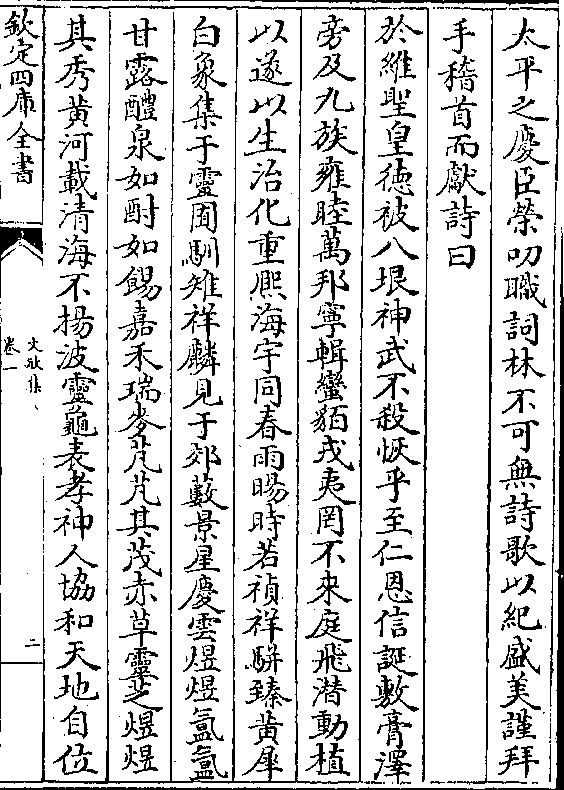 太平之慶臣榮叨職詞林不可無詩歌以紀盛美謹拜
手稽首而獻詩曰
於維聖皇徳被八垠神武不殺恢乎至仁恩信誕敷膏澤
旁及九族雍睦萬邦寧輯蠻貊戎夷罔不來庭飛潜動植
以遂以生治化重熈海宇同春雨暘時若禎祥駢臻黄犀
白象集于靈囿馴雉祥麟見于郊藪景星慶雲煜煜氲氲
甘露醴泉如酎如餳嘉禾瑞麥芃芃其茂赤草靈芝煜煜
其秀黄河載清海不揚波靈龜表孝神人協和天地自位
欽定四庫全書
文敏集
卷一
二